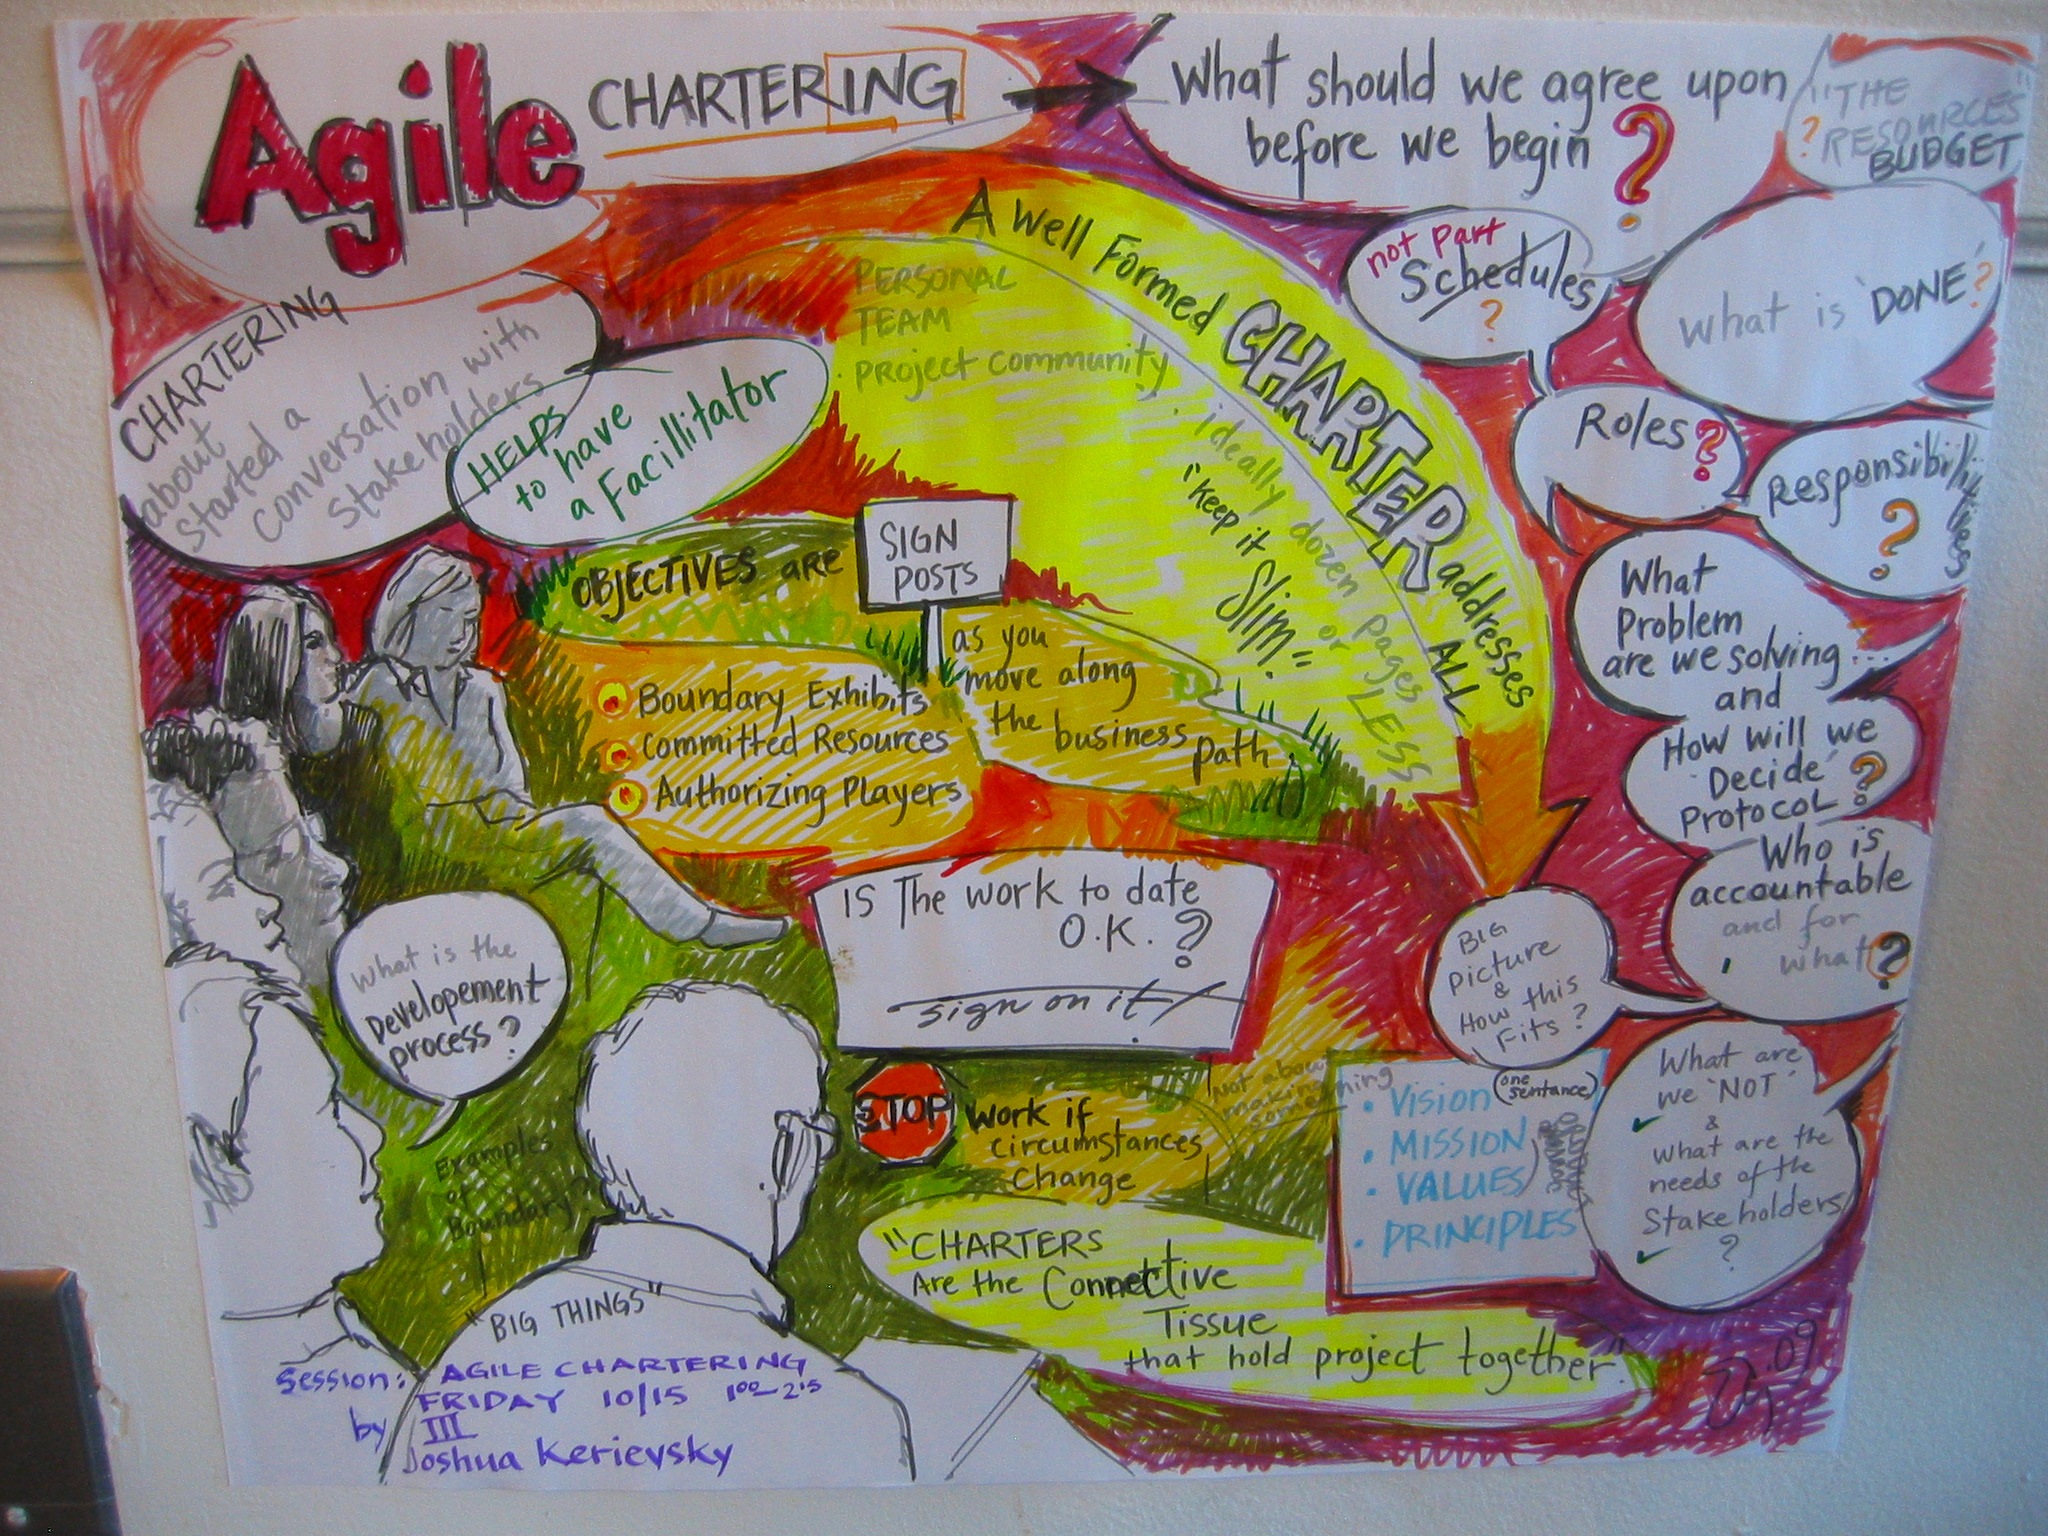 Agile CHARTERING
What should we agree upon
before we begin ?
"THE
RESOURCES"
BUDGET
?
not part
Schedules
?
What is 'DONE'?
Roles?
Responsibilities
?
What
Problem
are we solving...
and
How will we
'Decide'
Protocol?
Who is
accountable
and for
what?
BIG
Picture
&
How this
Fits?
What are
we 'NOT'
&
What are the
needs of the
Stakeholders
?
CHARTERING
about
started a
conversation with
stakeholders
HELPS
to have
a Facillitator
A Well Formed CHARTER addresses
ALL
PERSONAL
TEAM
Project community
ideally dozen pages
or LESS
"keep it
Slim"
OBJECTIVES are
SIGN
POSTS
as you
move along
the business path
Boundary Exhibits
Committed Resources
Authorizing Players
IS The work to date
O.K.?
sign on it!
STOP work if
circumstances
Change
Not about
making
something
Vision (one sentence)
MISSION
VALUES
PRINCIPLES
What is the
Developement
process?
Examples
of
Boundary?
"CHARTERS
Are the Connective
Tissue
that hold project together".
"BIG THINGS"
Session: AGILE CHARTERING
FRIDAY 10/15 1:00-2:15
by III
Joshua Kerievsky
.09